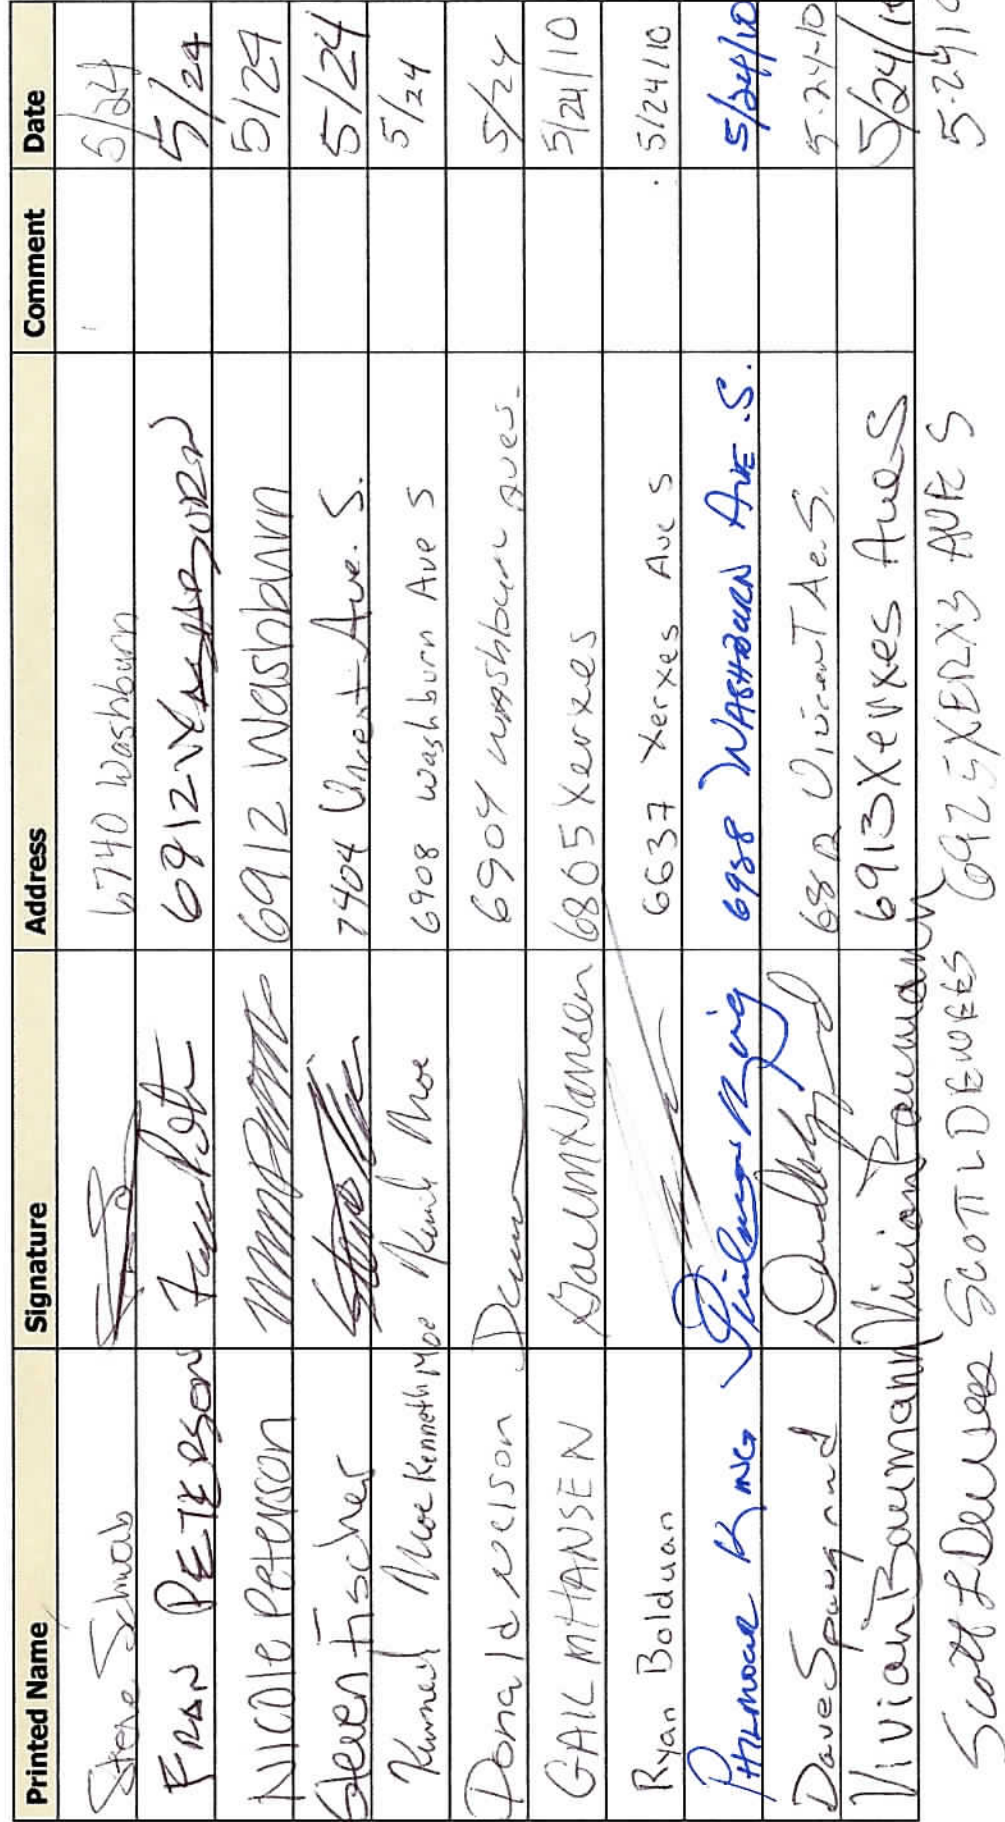 Printed Name Signature Address Comment Date
Steve Schwab 6740 Washburn 5/24
FRAN PETERSON 6912 WASHBURN 5/24
Nicole Peterson 6912 Washburn 5/24
Steven Fischer 7404 Vincent Ave. S. 5/24
Kenneth Moe Kenneth Moe Kenneth Moe 6908 Washburn Ave S 5/24
Donald Nelson 6904 Washburn Ave S. 5/24
GAIL M HANSEN Gail M Hansen 6805 Xerxes 5/24/10
Ryan Bolduan 6637 Xerxes Ave S 5/24/10
PHILMORE KING Philmore King 6938 WASHBURN AVE. S. 5/24/10
Dave 5-24-10
Vivian Baumann Vivian Baumann 6913 Xerxes Ave S 5/24/10
Scott L Dewees SCOTT L DEWEES 6925 XERXS AVE S 5-24 10